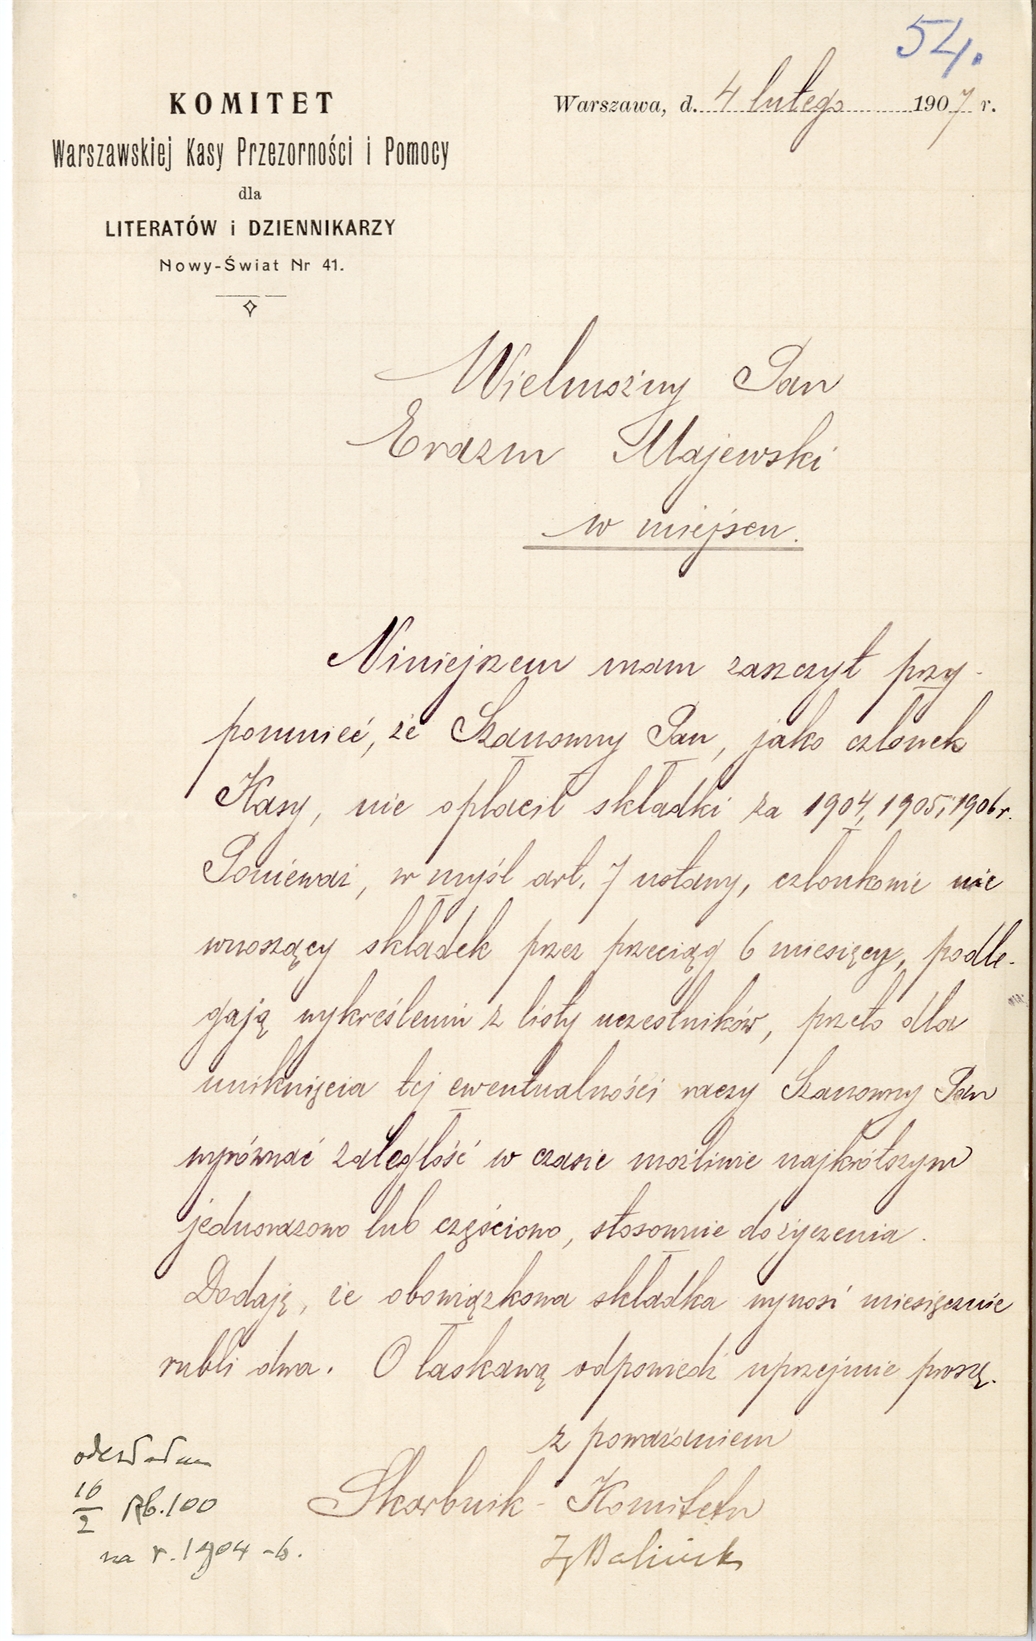 54.
KOMITET
Warszawskiej Kasy Przezorności i Pomocy
dla
LITERATÓW i DZIENNIKARZY
Nowy-Świat Nr 41.
Warszawa, d. 4 lutego 1907 r.
Wielmożny Pan
Erazm Majewski
w miejscu.
Niniejszem mam zaszczyt przy-
pomnieć, że Szanowny Pan, jako członek
Kasy, nie opłacił składki za 1904, 1905 i 1906 r.
Ponieważ, w myśl art. 7 ustawy, członkowie nie
wnoszący składek przez przeciąg 6 miesięcy, podle-
gają wykreśleniu z listy uczestników, przeto dla
uniknięcia tej ewentualności raczy Szanowny Pan
wyrównać zaległość w czasie możliwie najkrótszym
jednorazowo lub częściowo, stosownie do życzenia.
Dodaję, że obowiązkowa składka wynosi miesięcznie
rubli dwa. O łaskawą odpowiedź uprzejmie proszę.
z poważaniem
Skarbnik - Komitetu
odesłałem
16/2 Rb. 100
na r. 1904 - 6.